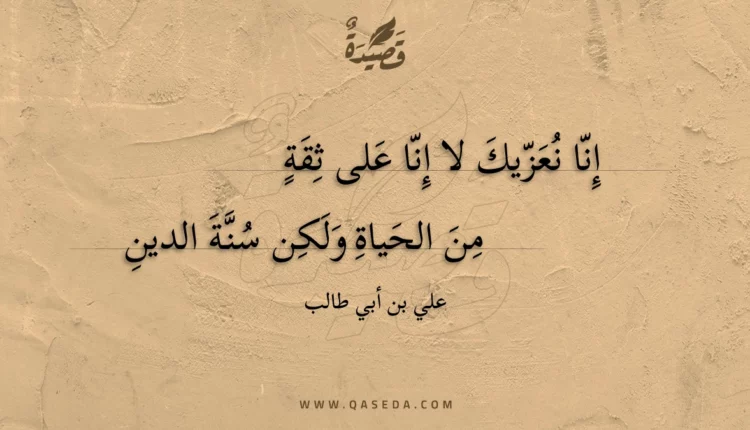 قَصِيدَةٌ
إِنّا نُعَزّيكَ لا إِنّا عَلى ثِقَةٍ
مِنَ الحَياةِ وَلَكِن سُنَّةَ الدينِ
علي بن أبي طالب
WWW.QASEDA.COM